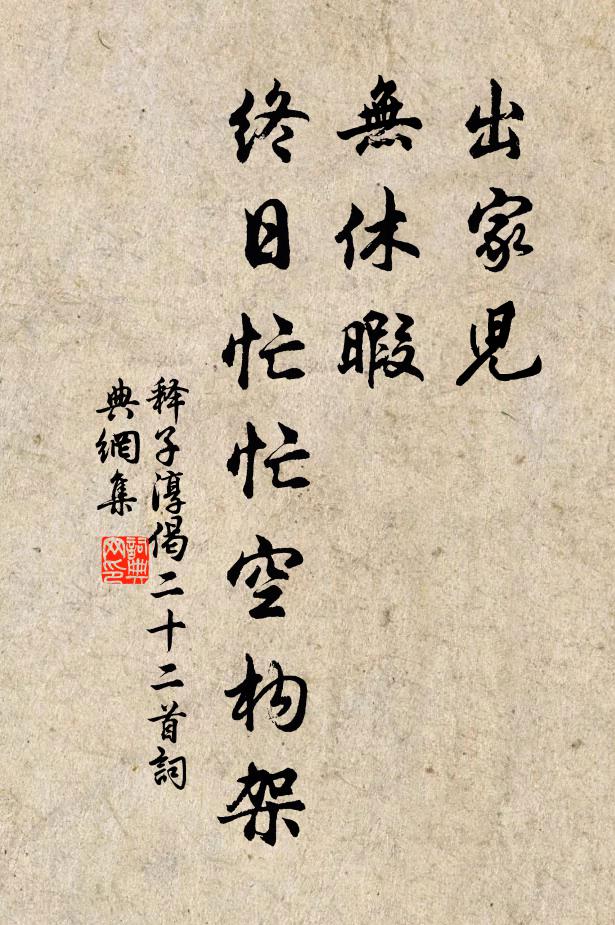 出家児
無休暇
終日忙忙空构架
释子淳偈二十二首詞
典網集
詞典
网印